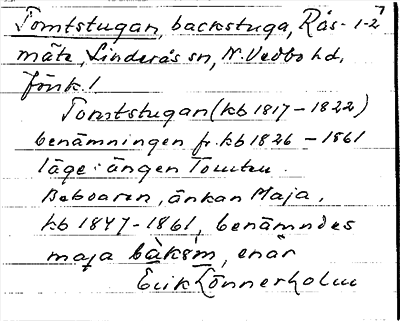 Tomtstugan, backstuga, Rås- 1-2
mätz, Linderås sn, N. Vedbo hd,
Jönk. l
Tomtstugan (kb 1817-1822)
benämningen fr. kb 1826 - 1861
läge: ängen Tomten.
Beboaren, änkan Maja,
kb 1847-1861, benämndes
maja bàksm, enär
Erik Lönnerholm